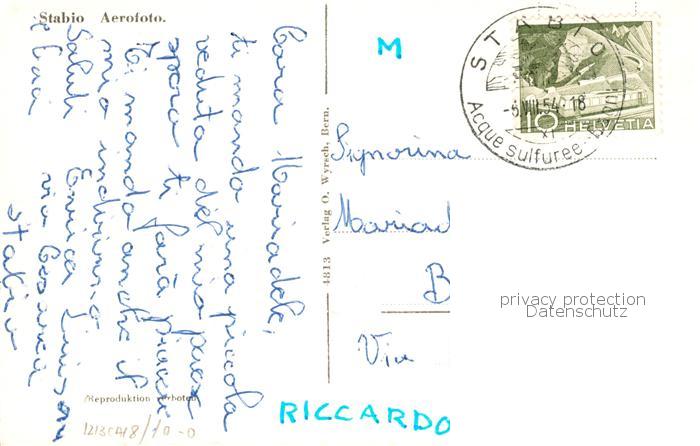 Stabio Aerofoto.
Cara Mariadele,
ti mando una piccola
veduta del mio paese
spero ti farà piacere
ti mando anche il
mio indirizzo
Saluti Enrica
e baci
via
Stabio
4813 Verlag O. Wyrsch, Bern.
Reproduktion verboten
M
STABIO
VIII.54 18
XI
Acque sulfuree
10 HELVETIA
Signorina
Mariad
B
Via
privacy protection
Datenschutz
RICCARDO